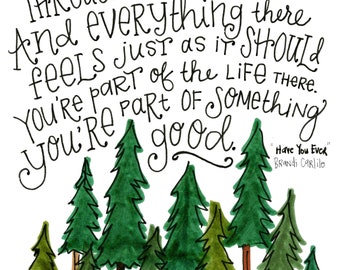 AND EVERYTHING there
FEELS JUST AS iT SHOULD
YOU'RE PART OF the LiFE THERE.
YOU'RE PART OF SOMEthiNG
good.
"HAVE YOU EVER"
BRANDi CARLiLE